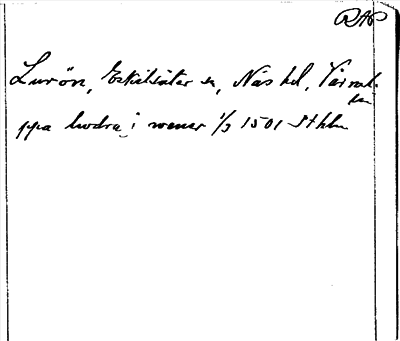 RAP
Lurön, Eskilsäter sn, Näs hd, Värml.
ln
ppa lwdra i wener 1/3 1501 Sthlm